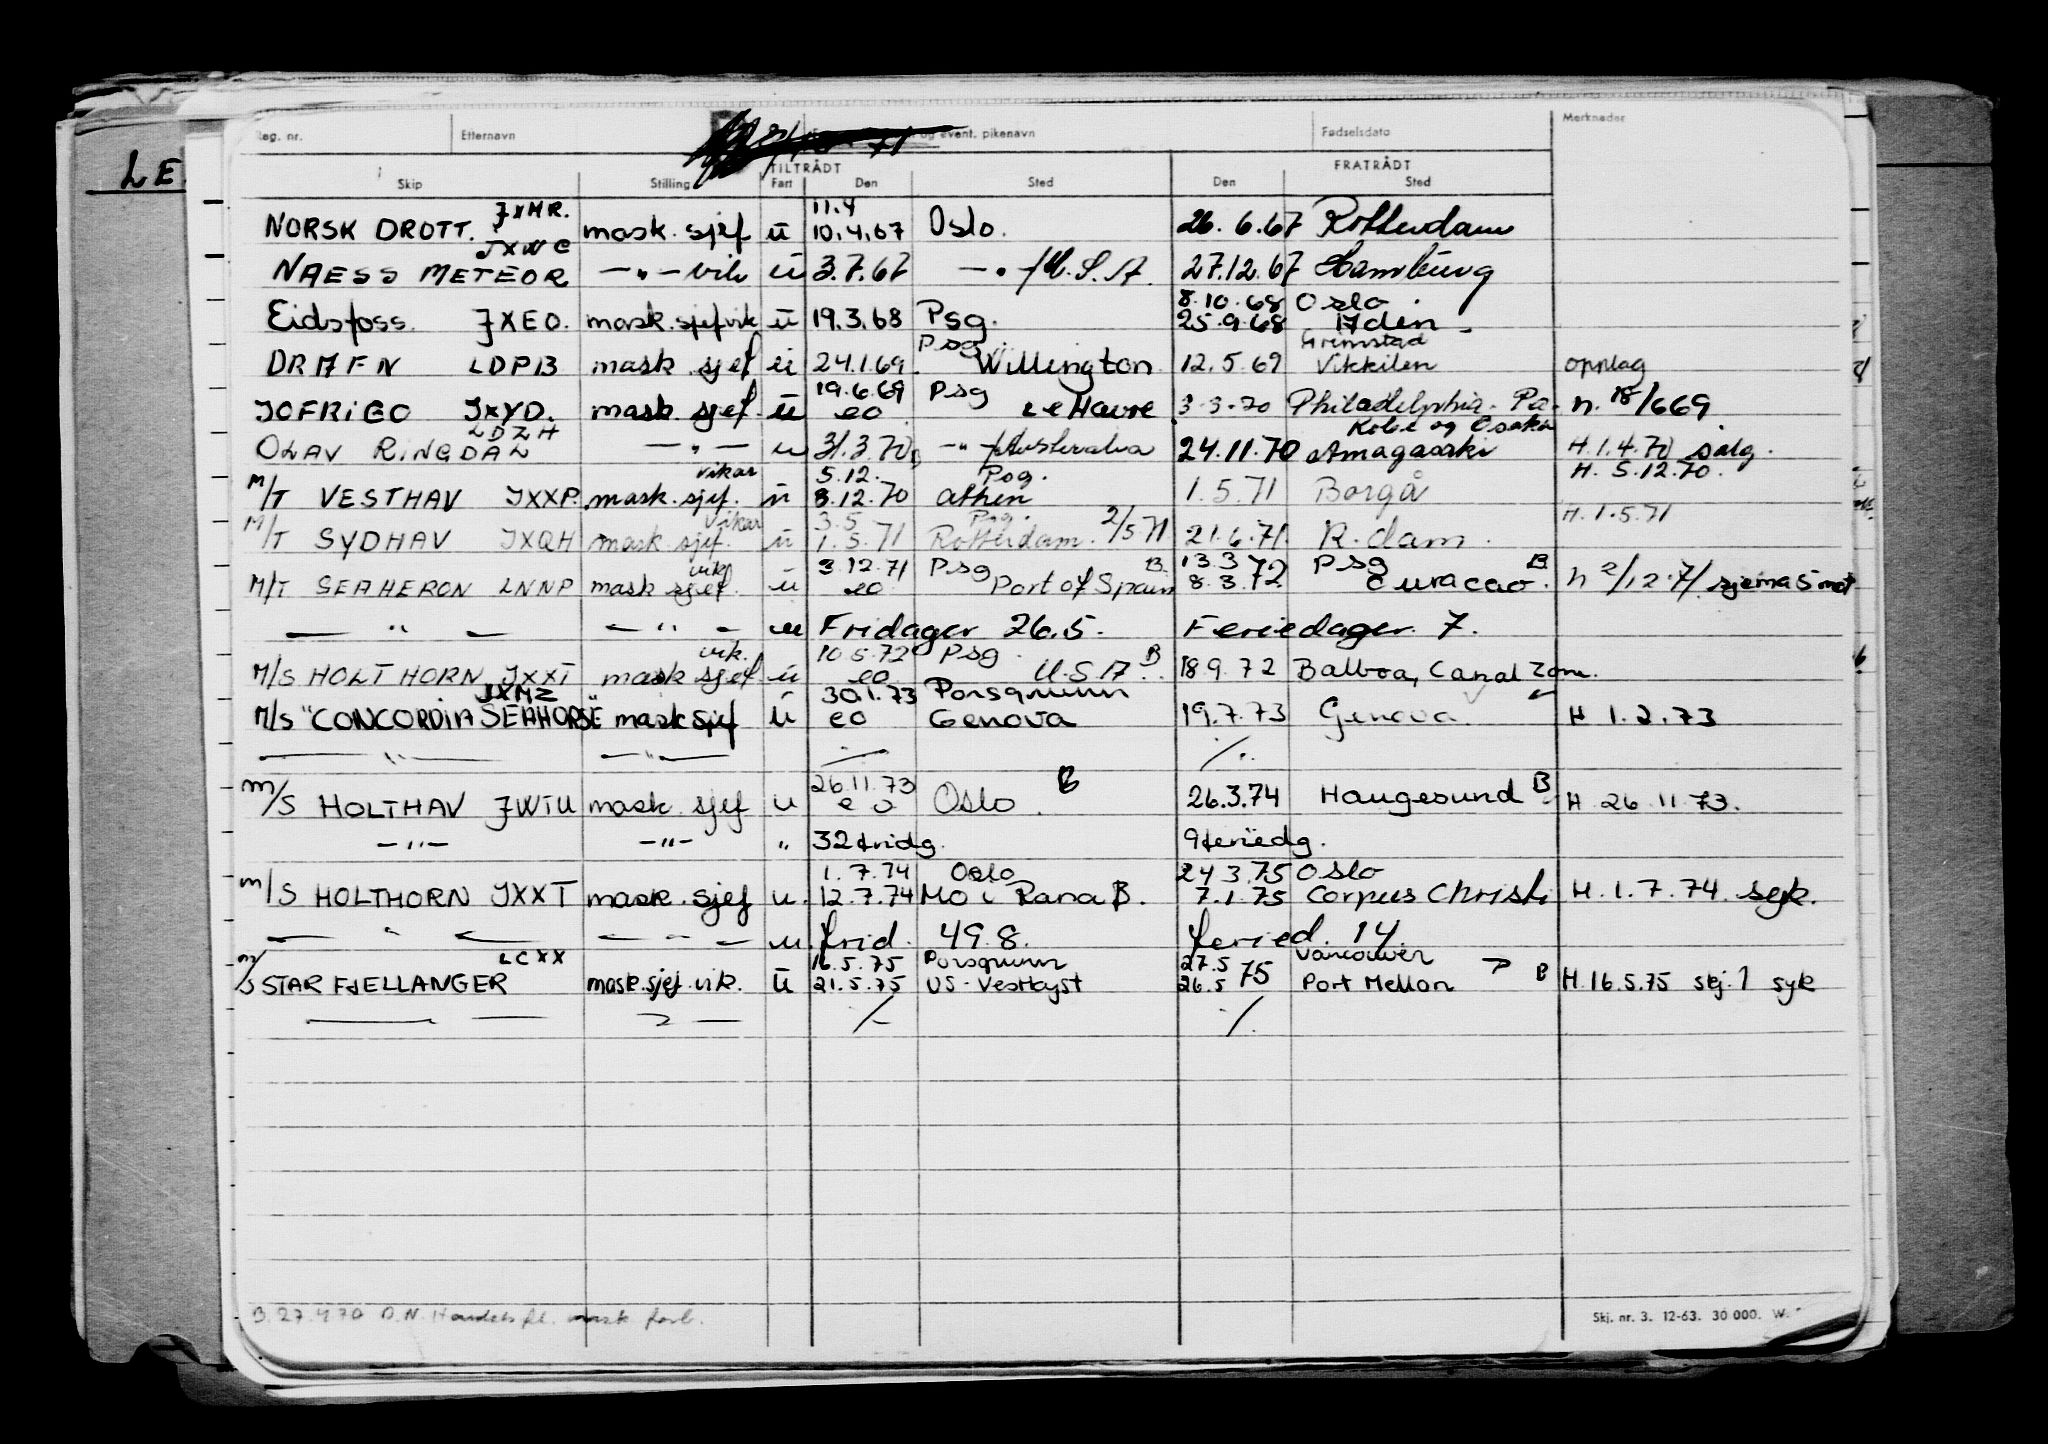 LE
Reg. nr. Etternavn og event. pikenavn Fødselsdato Merknader
71
TILTRÅDT FRATRÅDT
Skip Stilling Fart Den Sted Den Sted
JXMR. 11.4
NORSK DROTT. mask. sjef ü 10.4.67 Oslo. 26.6.67 Rotterdam
JXWC
NAESS METEOR —„— vik ü 3.7.67 —„— /U.S.A. 27.12.67 Hamburg
8.10.68 Oslo.
Eidsfoss. JXEO. mask.sjef vik ü 19.3.68 Psg. 25.9.68 Aden
Psg. Grimstad
DRAFN LDPB mask. sjef ü 24.1.69. Willington 12.5.69 Vikkilen opplag
19.6.69 Psg
JOFRIGO JXYD. mask. sjef. ü eo Le Havre 3-3-70 Philadelphia. Pa. h. 18/669
LDZH Kobe og Osaka
OLAV RINGDAL —„— u 31.3.70 —„— Australia 24.11.70 Amagasaki H.1.4.70 salg.
vikar 5.12. Psg. H. 5.12.70.
M/T VESTHAV JXXP. mask. sjef. ü 8.12.70 Athen 1.5.71 Borgå
vikar 3.5 Psg. H.1.5.71
M/T SYDHAV JXQH mask. sjef. ü 1.5.71 Rotterdam. 2/5 71 21.6.71 R.dam.
vik 3.12.71 Psg B. 13.3 Psg B.
M/T SEAHERON LNNP mask sjef. ü eo Port of Spain 8.3.72 Curacao. h 2/12.71 sjema 5 mot
— „ — — „ — u Fridager 26.5. Feriedager. 7.
vik. 10.5.72 Psg. B
M/S HOLTHORN JXXT mask sjef ü eo U.S.A. 18.9.72 Balboa, Canal Zone.
JXMZ 30.1.73 Porsgrunn
M/S "CONCORDIA SEAHORSE" mask sjef ü eo Genova 19.7.73 Genova. H 1.2.73
—„— —„— ./. ./.
26.11.73 B
m/S HOLTHAV JWTU mask. sjef u eo Oslo. 26.3.74 Haugesund B H 26.11.73.
—„— —„— „ 32 fridg. 9 feriedg.
1.7.74 Oslo 24.3.75 Oslo
m/S HOLTHORN JXXT mask. sjef u. 12.7.74 Mo i Rana B. 7.1.75 Corpus Christi H.1.7.74. syk.
— „ — — „ — u frid. 49.8. feried. 14.
LCXX 16.5.75 Porsgrunn 27.5 Vancouver
m/S STAR FJELLANGER mask.sjef.vik. ü 21.5.75 US-Vestkyst 26.5 75 Port Mellon B H.16.5.75 skj.1 syk
./. ./.
B. 27.4.70 D.N. Handelsfl. mask forb.
Skj. nr. 3. 12-63. 30 000. W.